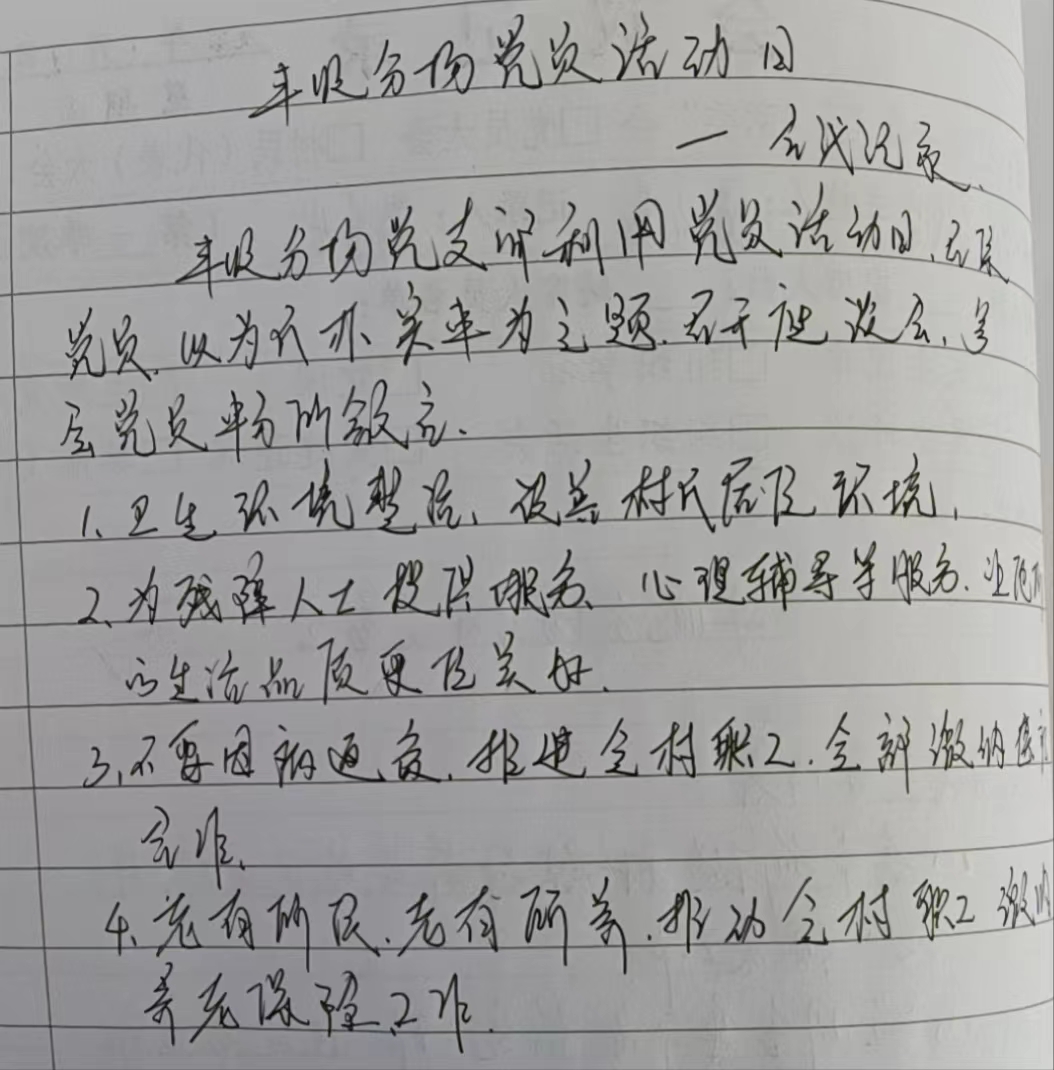 丰收分场党员活动日
一 会议记录、
丰收分场党支部利用党员活动日、召集
党员、以为民办实事为主题、召开座谈会、
党员 所
1、卫生环境整治、改善村民居住环境、
2、为残障人士提供服务、心理辅导等服务、让
的生活品质更佳美好、
3、不要因病返贫、推进全村职工、全部缴纳
工作、
4、老有所民、老有所养、推动全村职工缴纳
养老保险工作、